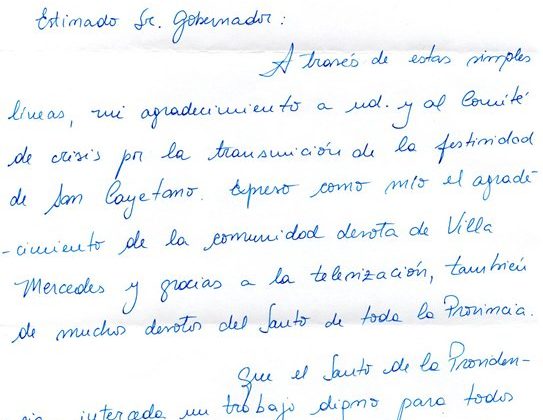 Estimado Sr. Gobernador:
A través de estas simples
líneas, mi agradecimiento a ud. y al Comité
de crisis por la transmición de la festividad
de San Cayetano. Expreso como mío el agrade
-cimiento de la comunidad devota de Villa
Mercedes y gracias a la televización, también
de muchos devotos del Santo de toda la Provincia.
Que el Santo de la Providen-
cia interceda un trabajo digno para todos